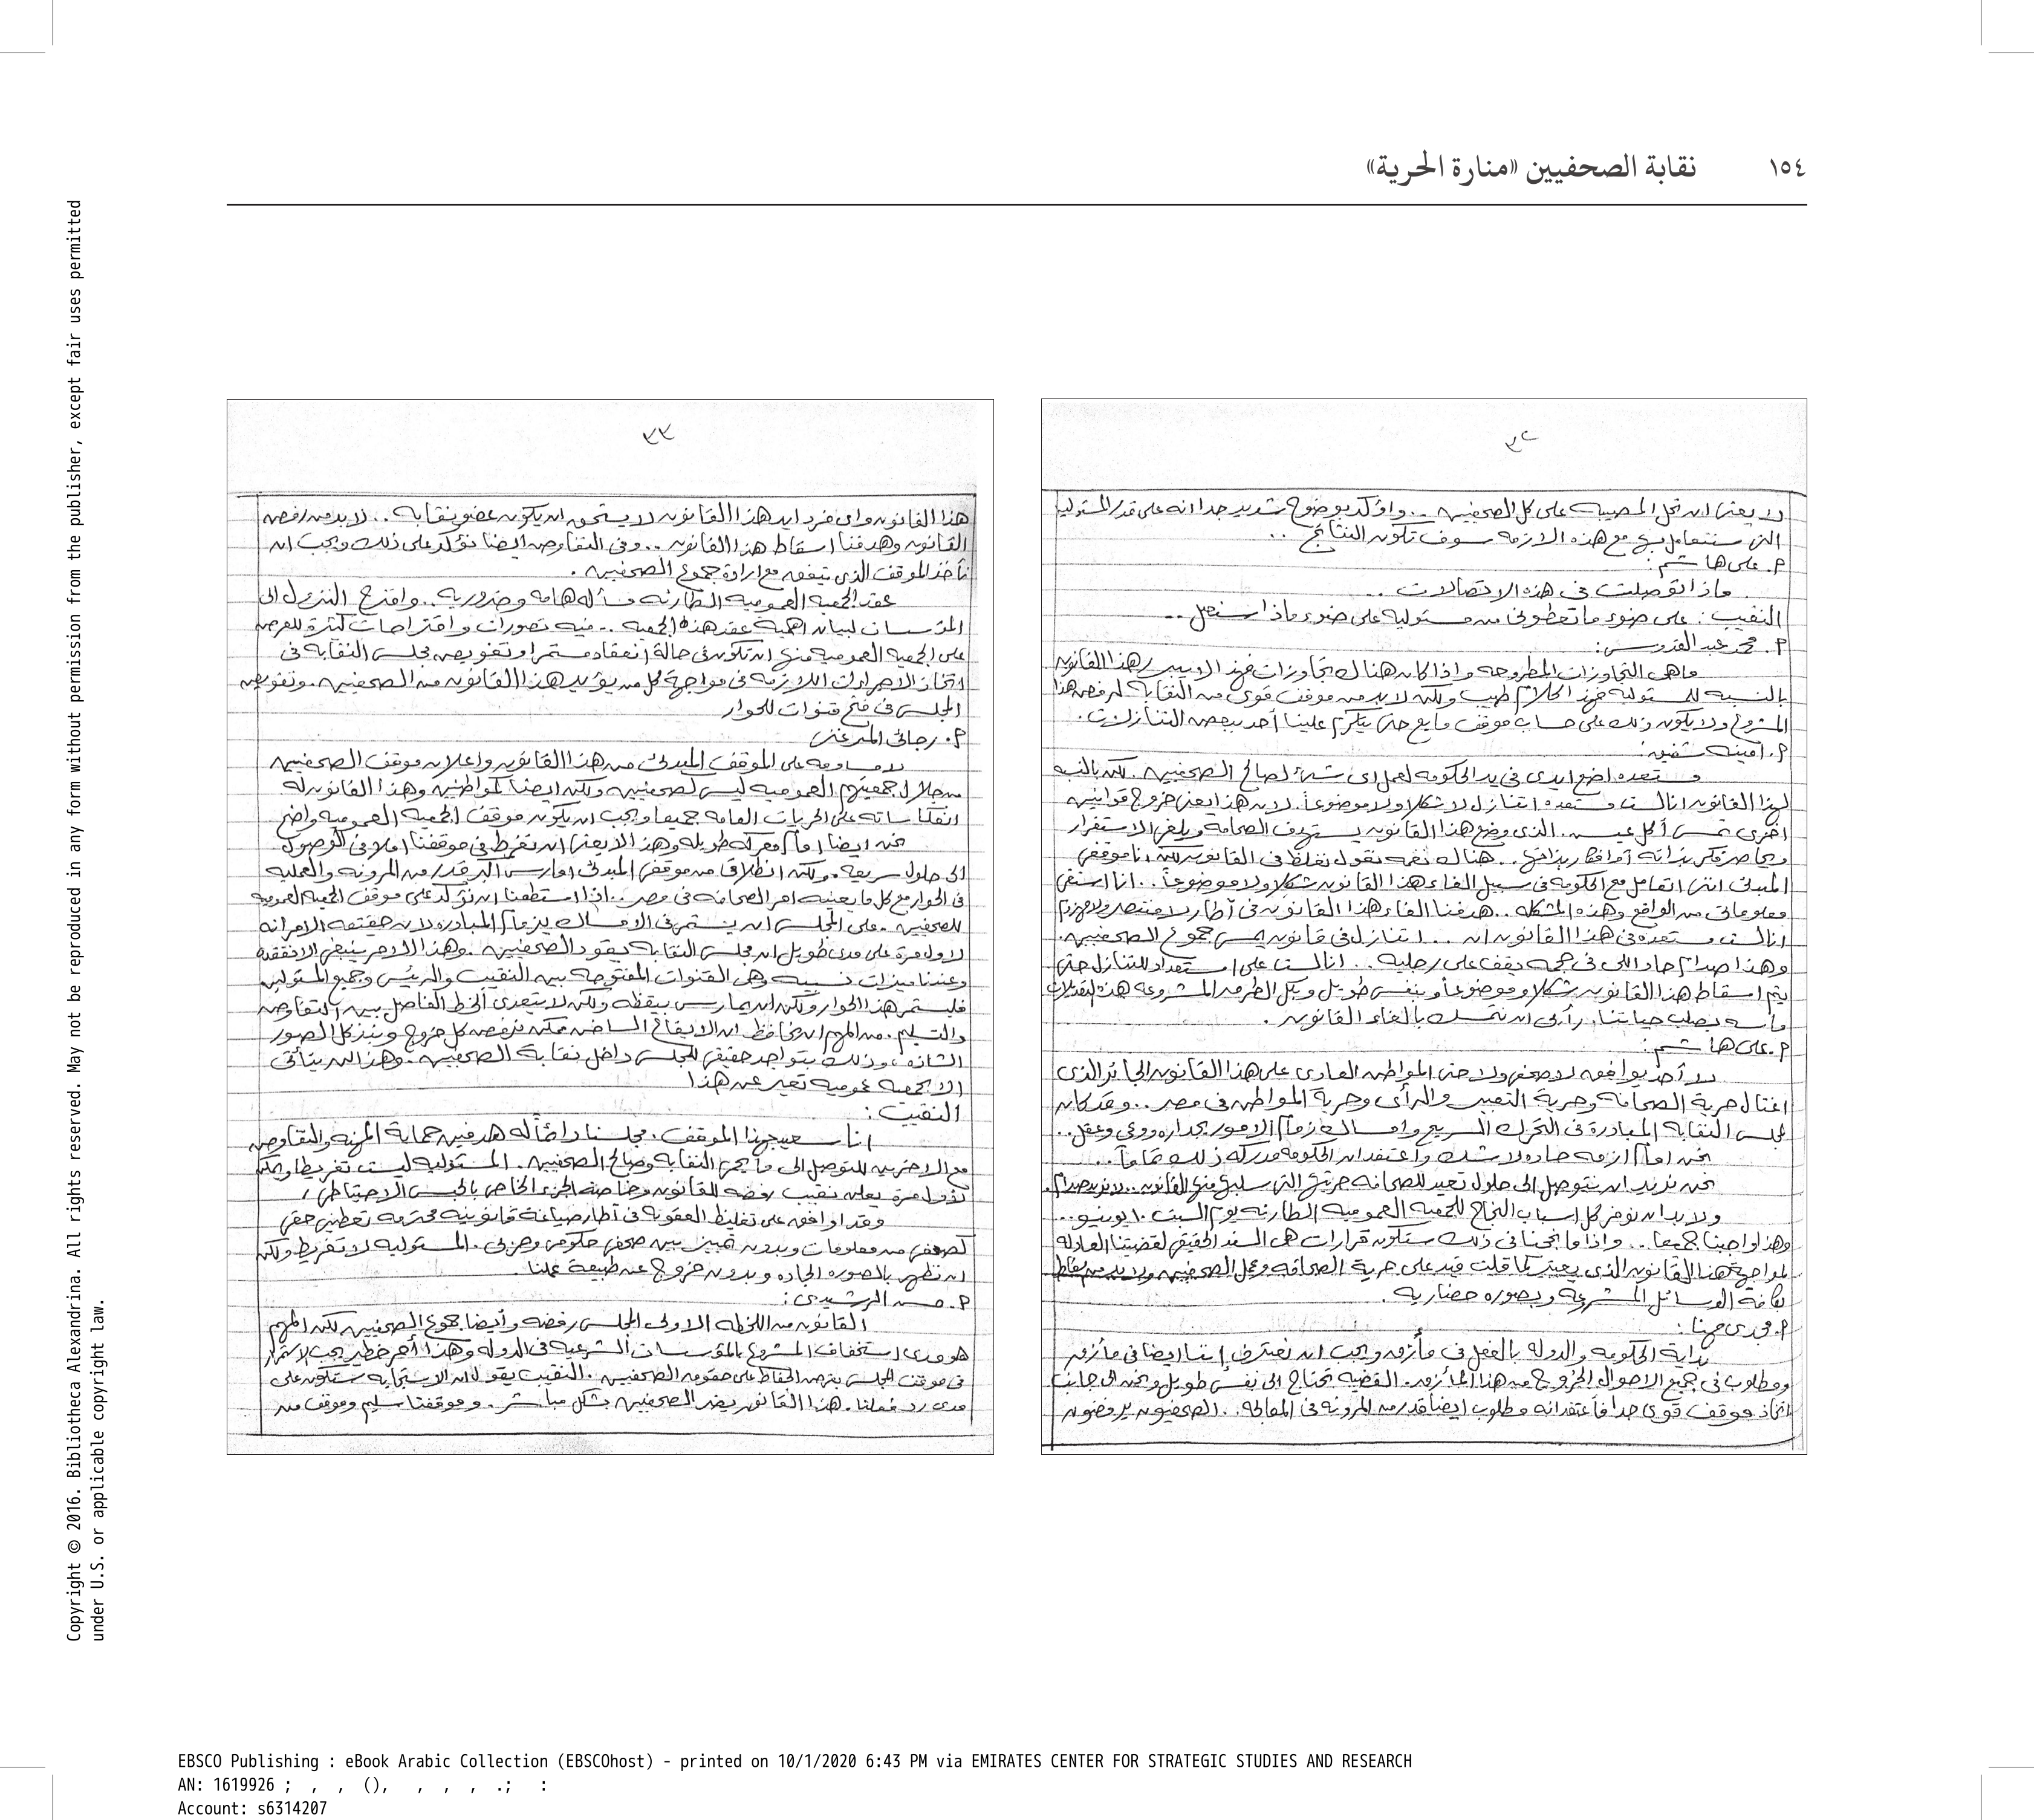 ١٥٤ نقابة الصحفيين «منارة الحرية»
٣٢
لا يعنى ان تحل المصيبة على كل الصحفيين .. واؤكد بوضوح شديد جدا انه على قدر المسئوليا
التى سنتعامل بها مع هذه الازمه سوف تكون النتائج ..
م. على هاشم:
ماذا توصلت فى هذه الاتصالات ..
النقيب: على ضوء ما تعطونى من مسئوليه على ضوء ماذا سنعمل ..
م. محمد عبد القدوس:
ماهى التجاوزات المطروحه واذا كان هناك تجاوزات فهذا لا يبرر هذا القانون
بالنسبه للمسئوليه فهذا كلام طيب ولكن لابد من موقف قوى من النقابه لرفض هذا
المشروع ولا يكون ذلك على حساب موقف مايع حتى يتكرم علينا أحد ببعض التنازلات.
م. امينه شفيق:
مستعده اضع ايدى فى يد الحكومه لعمل اى شئ لصالح الصحفيين. لكن بالنسبه
لهذا القانون انا لست مستعده اتنازل لا شكلا ولا موضوعاً. لان هذا يعنى خروج قوانين
اخرى تمس أكل عيش. الذى وضع هذا القانون يستهدف الصحافه ويلغى الاستقرار
ويحاصر فكر بذاته أو افكار بذاتها.. هناك نغمه تقول نغلظ فى القانون لكن انا موقفى
المبدئى اننى اتعامل مع الحكومه فى سبيل الغاء هذا القانون شكلا ولا موضوعاً.. انا استقى
معلوماتى من الواقع وهذه المشكله.. هدفنا الغاء هذا القانون فى أطار لا منتصر ولا مهزوم
انا لست مستعده فى هذا القانون ان ... اتنازل فى قانون يمس جموع الصحفيين.
وهذا صدام حاد اللى فى مخه يقف على رجليه.. انا لست على استعداد للتنازل حتى
يتم اسقاط هذا القانون شكلا وموضوعاً وبنفس طويل وبكل الطرق المشروعه هذه التعديلات
ماسه بصلب حياتنا، رأيى ان نتمسك بالغاء القانون.
م. على هاشم:
لا أحد يوافق لا صحفى ولا حتى المواطن العادى على هذا القانون الجائر الذى
اغتال حرية الصحافه وحرية التعبير والرأى وحرية المواطن فى مصر .. وقد كان
لمجلس النقابه المبادرة فى التحرك السريع وامساك زمام الامور بجداره ووعى وعقل..
نحن امام ازمه حاده لا شك وأعتقد ان الحكومه مدركه ذلك تماماً..
نحن نريد ان نتوصل الى حلول تعيد للصحافه حريتها التى سلبها منها القانون .. لا نريد صدام.
ولابد ان نوفر كل اسباب النجاح للجمعيه العموميه الطارئه يوم السبت ١٠ يونيو..
وهذا واجبنا جميعا .. واذا ما نجحنا فى ذلك ستكون قرارات هى السند الحقيقى لقضيتنا العادله
لمواجهة هذا القانون الذى يعتبر كما قلت قيد على حرية الصحافه وعمل الصحفيين ولابد من اسقاط
بكافة الوسائل المشروعه وبصوره حضاريه.
م. مجدى مهنا:
بداية الحكومه والدوله بالفعل فى مأزق ويجب ان نعترف إننا ايضا فى مأزق
ومطلوب فى جميع الاحوال الخروج من هذا المأزق. القضيه تحتاج الى نفس طويل ونحن الى جانب
اتخاذ موقف قوى جدا فأعتقد انه مطلوب ايضا قدر من المرونه فى المعالجه.. الصحفيون يرفضون
٣٣
هذا القانون واى فرد ايد هذا القانون لا يستحق ان يكون عضو نقابه .. لابد من رفض
القانون وهدفنا اسقاط هذا القانون .. وفى التفاوض ايضا نؤكد على ذلك ويجب ان
نأخذ الموقف الذى يتفق مع ارادة جموع الصحفيين.
عقد الجمعيه العموميه الطارئه مسأله هامه وضروريه.. واقترح النزول الى
المؤسسات لبيان اهمية عقد هذه الجمعيه .. فيه تصورات واقتراحات كثيرة للعرض
على الجمعيه العموميه منها ان تكون فى حالة إنعقاد مستمر وتفويض مجلس النقابه فى
اتخاذ الاجراءات اللازمه فى مواجهة كل من يؤيد هذا القانون من الصحفيين. وتفويض
المجلس فى فتح قنوات للحوار
م. رجائى الميرغنى
لا مساومه على الموقف المبدئى من هذا القانون واعلان موقف الصحفيين
من خلال جمعيتهم العموميه ليس لصحفيين ولكن ايضا لمواطنين وهذا القانون له
انعكاساته على الحريات العامه جميعا ويجب ان يكون موقف الجمعيه العموميه واضح
نحن ايضا امام معركه طويله وهذا لا يعنى ان نفرط فى موقفنا املا فى الوصول
الى حلول سريعه. ولكن انطلاقا من موقفى المبدئى امارس اكبر قدر من المرونه والعمليه
فى الحوار مع كل ما يعنيه امر الصحافه فى مصر .. اذا استطعنا ان نؤكد على موقف الجمعيه العموميه
للصحفيين. على المجلس ان يستمر فى الامساك بزمام المبادره لان حقيقة الامر انه
لاول مرة على مدى طويل ان مجلس النقابه يقود الصحفيين. وهذا الامر ينبغى الا نفقده
وعندنا ميزات نسبيه وهى القنوات المفتوحه بين النقيب والرئيس وجميع المسئولين
فليستمر هذا الحوار ولكن ان يمارس بيقظه ولكن لا يتعدى الخط الفاصل بين التفاوض
والتسليم. من المهم ان نحافظ ان الايقاع الساخن ممكن نرفض كل خروج وننبذ كل الصور
الشاذه، وذلك بتواجد حقيقى للمجلس داخل نقابة الصحفيين. وهذا لن يتأتى
الا بجمعيه عموميه تعبر عن هذا
النقيب:
انا سعيد بهذا الموقف. مجلسنا دائما له هدفين حماية المهنه والتفاوض
مع الاخرين للتوصل الى ما يحمى النقابه وصالح الصحفيين. المسئوليه ليست تفريطا ولكن
لاول مرة يعلن نقيب رفضه للقانون وخاصة الجزء الخاص بالحبس الاحتياطى،
وقد اوافق على تغليظ العقوبه فى أطار صياغة قانونيه محترمه تعطينى حقى
كصحفى من معلومات وبدون تمييز بين صحفى حكومى وحزبى. المسئوليه لا تفريط ولكن
ان نظهر بالصوره الجاده وبدون خروج عن طبيعة عملنا.
م. حسن الرشيدى:
القانون من اللحظه الاولى المجلس رفضه وأيضا جموع الصحفيين لكن المهم
هو مدى استخفاف المشروع بالمؤسسات الشرعيه فى الدوله وهذا أمر خطير يجب الاستمرار
فى موقف المجلس بغرض الحفاظ على حقوق الصحفيين. النقيب يقول ان الاستجابه ستكون على
مدى رد فعلنا. هذا القانون يضر الصحفيين بشكل مباشر. وموقفنا سليم وموقف من
Copyright © 2016. Bibliotheca Alexandrina. All rights reserved. May not be reproduced in any form without permission from the publisher, except fair uses permitted
under U.S. or applicable copyright law.
EBSCO Publishing : eBook Arabic Collection (EBSCOhost) - printed on 10/1/2020 6:43 PM via EMIRATES CENTER FOR STRATEGIC STUDIES AND RESEARCH
AN: 1619926 ; , , (), , , , .; :
Account: s6314207